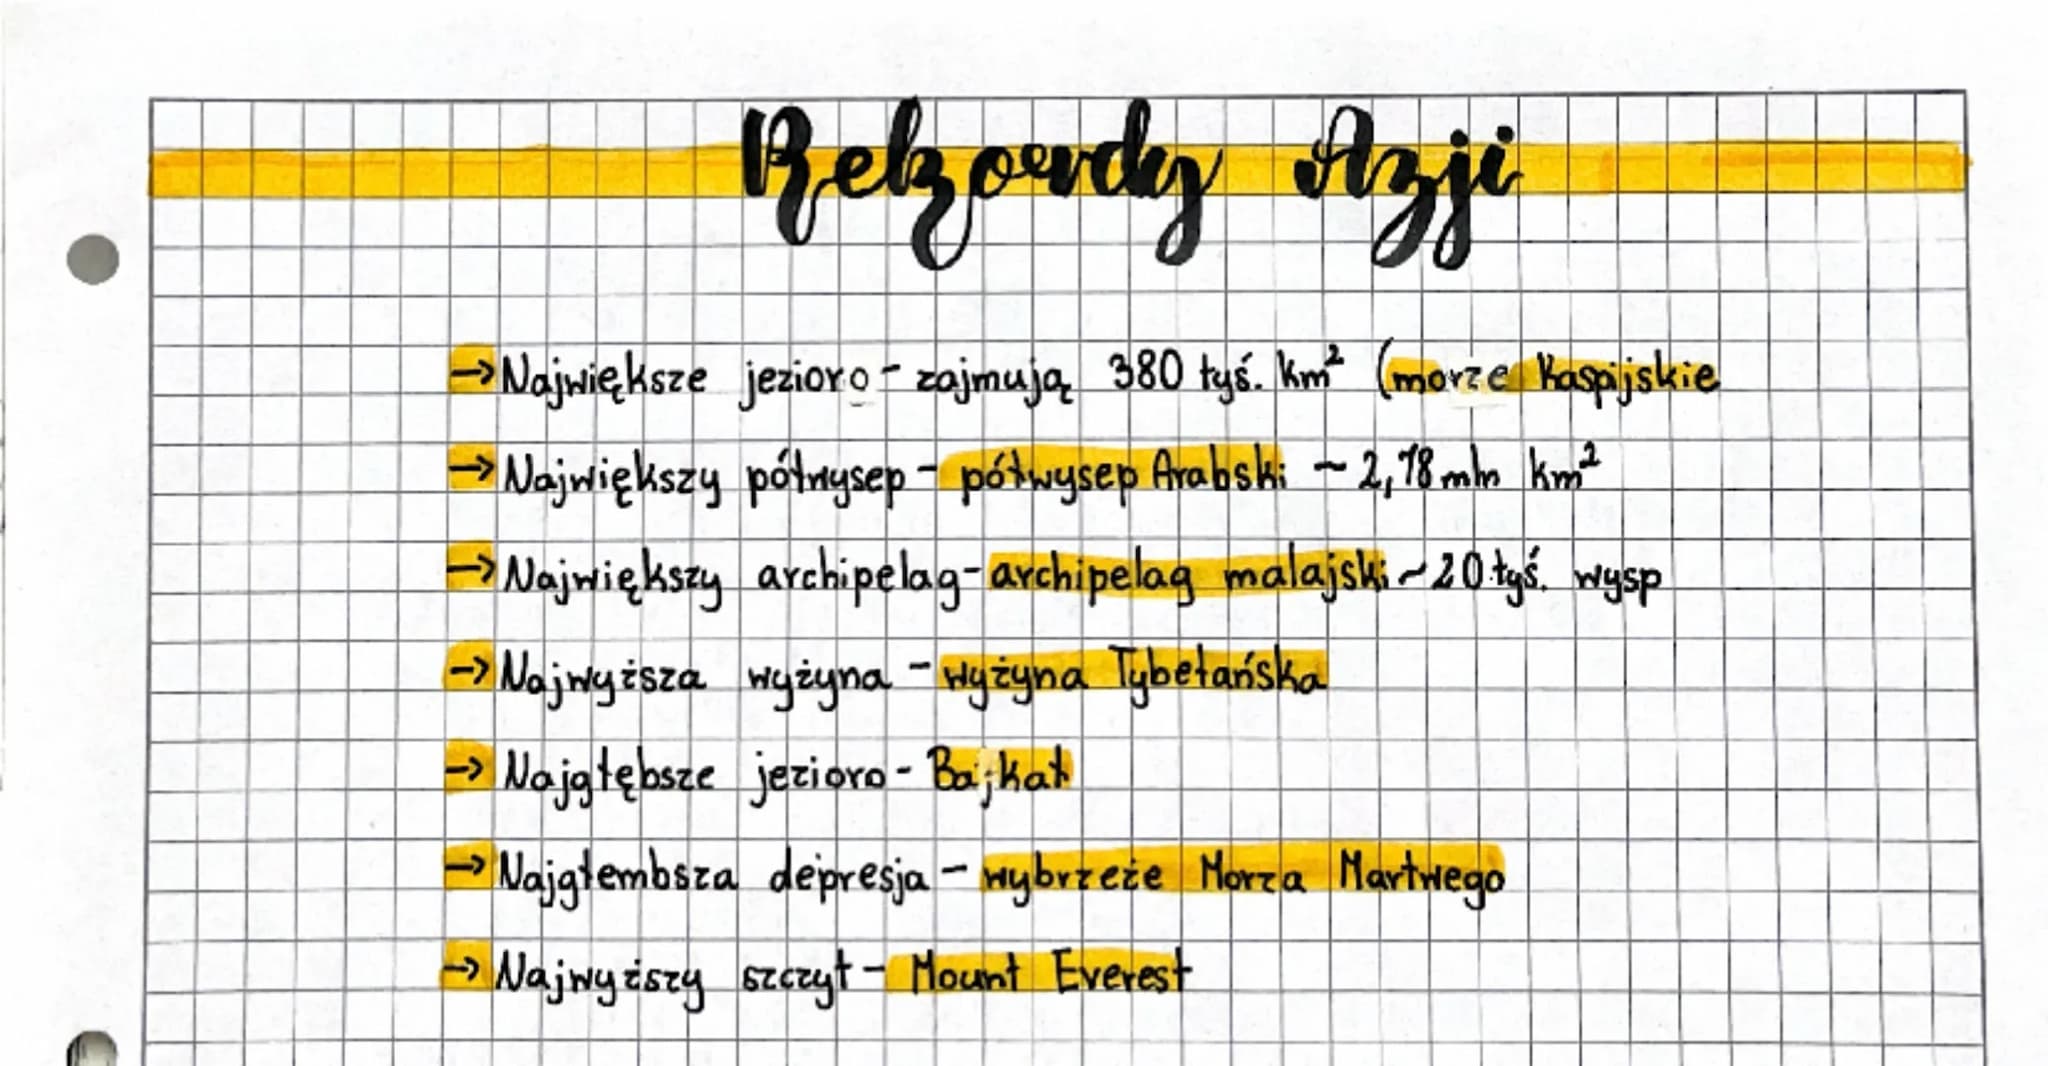 Rekordy Azji
→Największe jezioro - zajmują 380 tyś. km² (morze Kaspijskie
→Największy półwysep - półwysep Arabski ~ 2,78 mln km²
→Największy archipelag- archipelag malajski ~20 tyś. wysp
→Najwyższa wyżyna - wyżyna Tybetańska
→Najgłębsze jezioro - Bajkał
→Najgłembsza depresja - wybrzeże Morza Martwego
→Najwyższy szczyt - Mount Everest